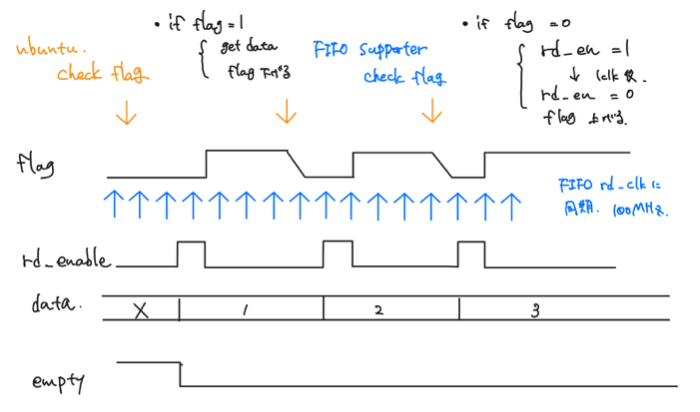 ubuntu.
check flag
• if flag = 1
get data
flag 下げる
FIFO supporter
check flag
• if flag = 0
rd_en = 1
↓ 1clk 後.
rd_en = 0
flag 上げる.
flag
FIFO rd_clk に
同期. 100MHz.
rd_enable
data.
X
1
2
3
empty